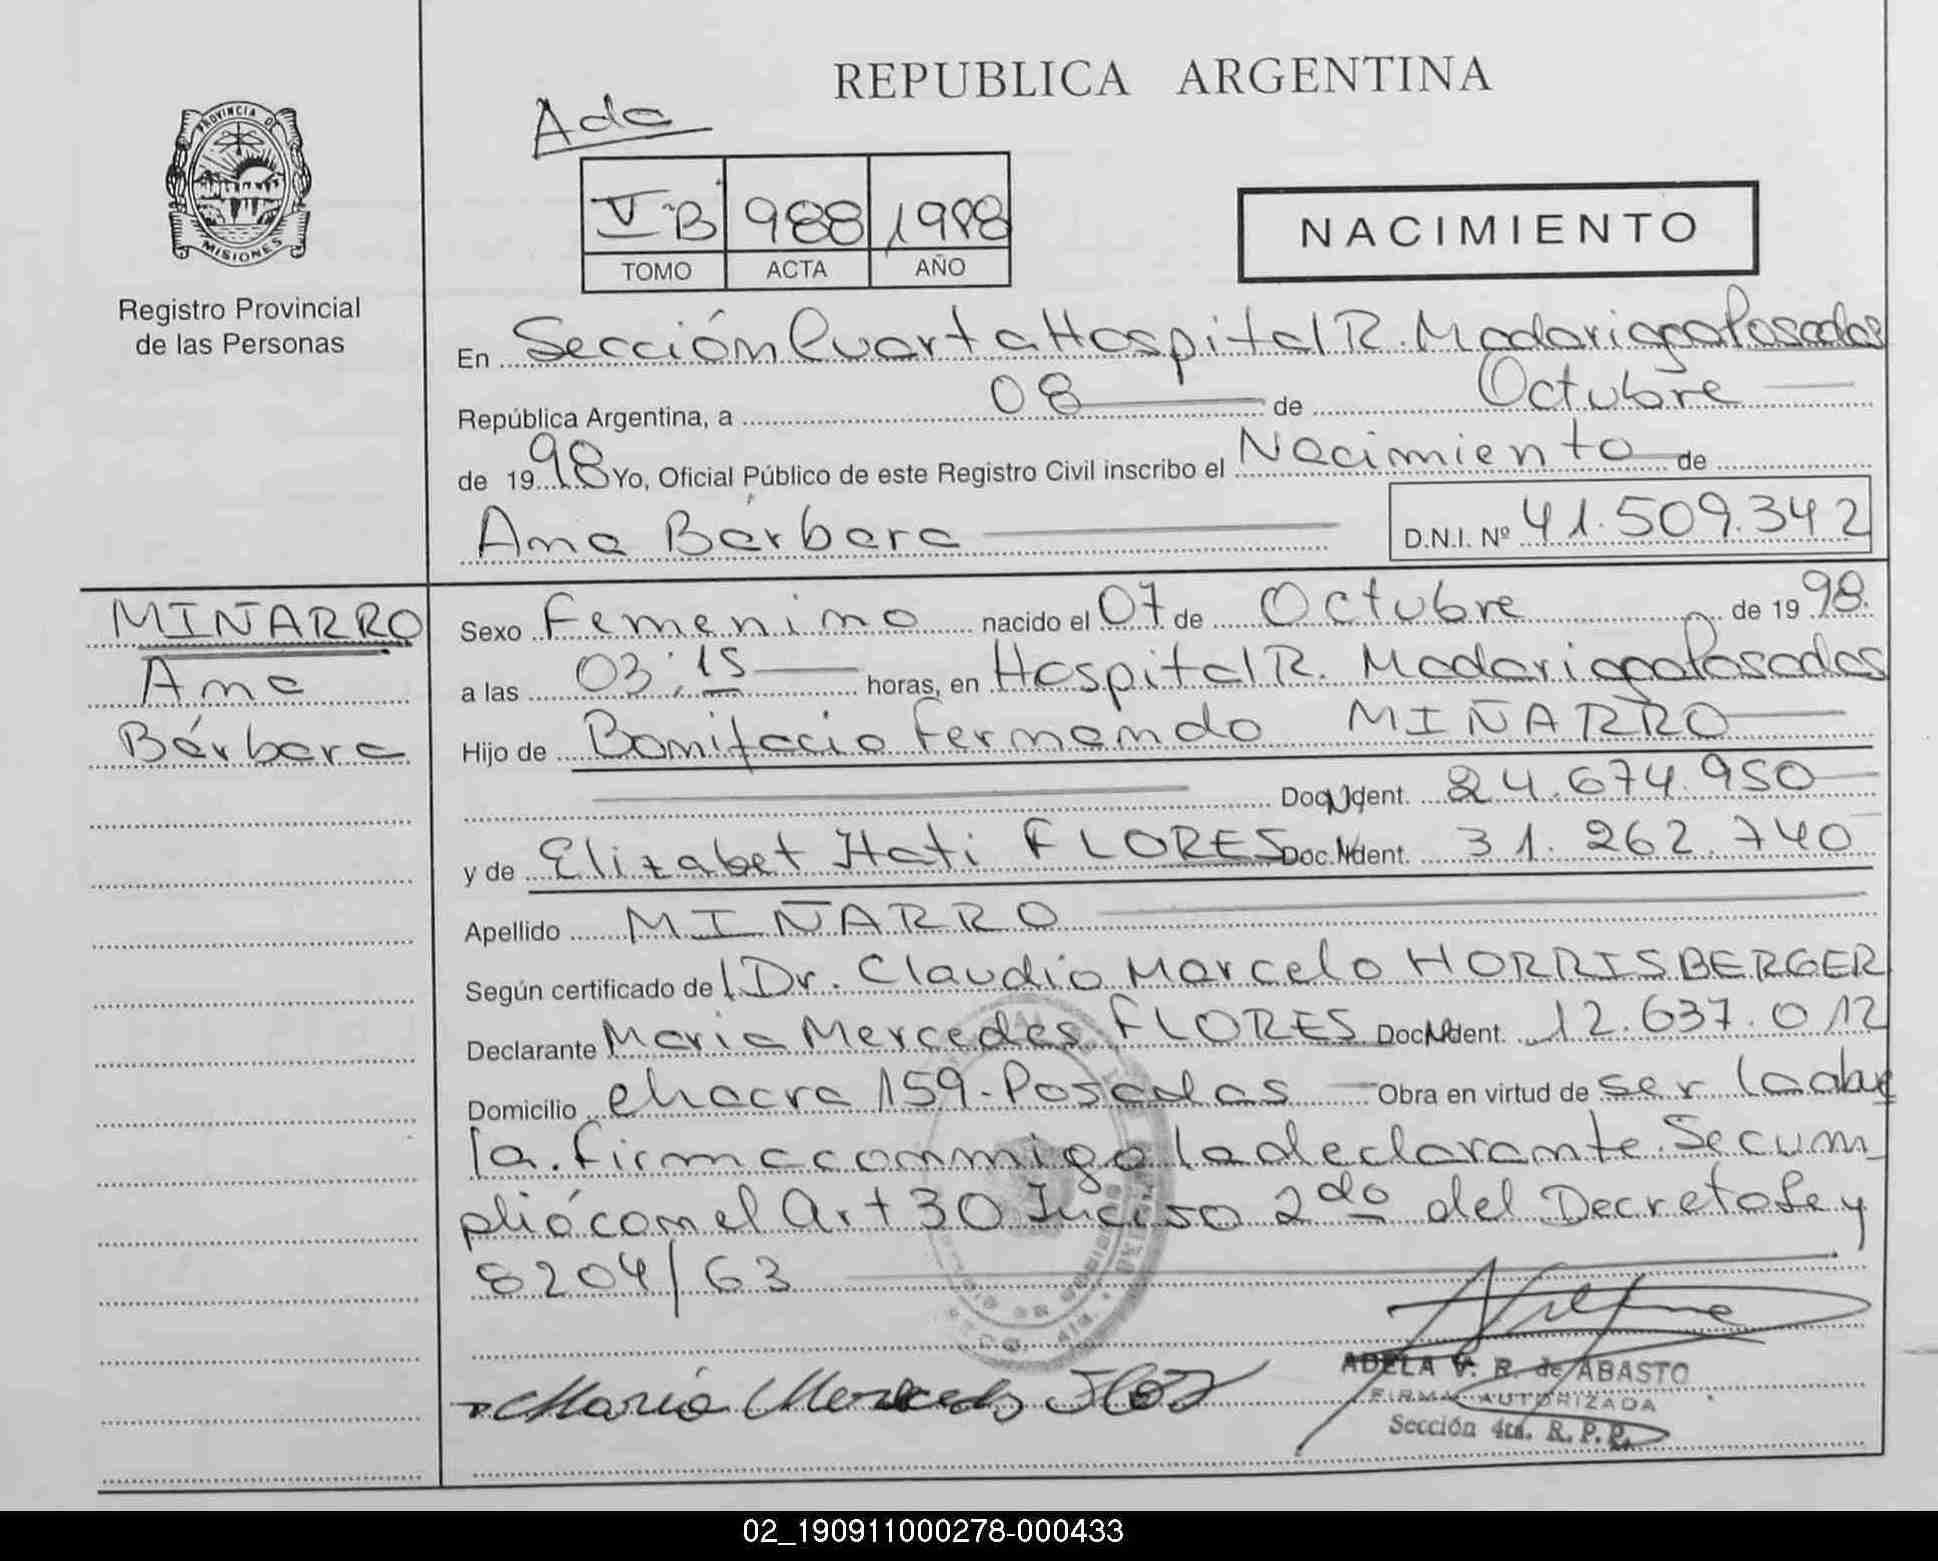 REPUBLICA ARGENTINA
Ada
PROVINCIA DE
MISIONES
V B 988 1998
TOMO ACTA AÑO
NACIMIENTO
Registro Provincial
de las Personas
En Sección Cuarta Hospital R. Madariaga Posadas
República Argentina, a 08 de Octubre
de 1998 Yo, Oficial Público de este Registro Civil inscribo el Nacimiento de
Ana Bárbara D.N.I. Nº 41.509.342
MIÑARRO
Ana
Bárbara
Sexo Femenino nacido el 07 de Octubre de 1998.
a las 03:15 horas, en Hospital R. Madariaga Posadas
Hijo de Bonifacio Fernando MIÑARRO
Doc. Ident. 24.674.950
y de Elizabet Itati FLORES Doc. Ident. 31.262.740
Apellido MIÑARRO
Según certificado de l Dr. Claudio Marcelo HORRISBERGER
Declarante Maria Mercedes FLORES Doc. Ident. 12.637.012
Domicilio chacra 159-Posadas Obra en virtud de ser la abue
la. firma conmigo la declarante. Se cum
plió con el Art 30 Inciso 2do del Decreto Ley
8204/63
Maria Mercedes
ADELA V. R. de ABASTO
FIRMA AUTORIZADA
Sección 4ta. R. P. P.
02_190911000278-000433